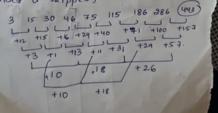 3 15 30 46 75 115 186 286 443
+12 +15 +16 +29 +40 +71 +100 +157
+3 +1 +13 +11 +31 +29 +57
+10 +18 +26
+10 +18